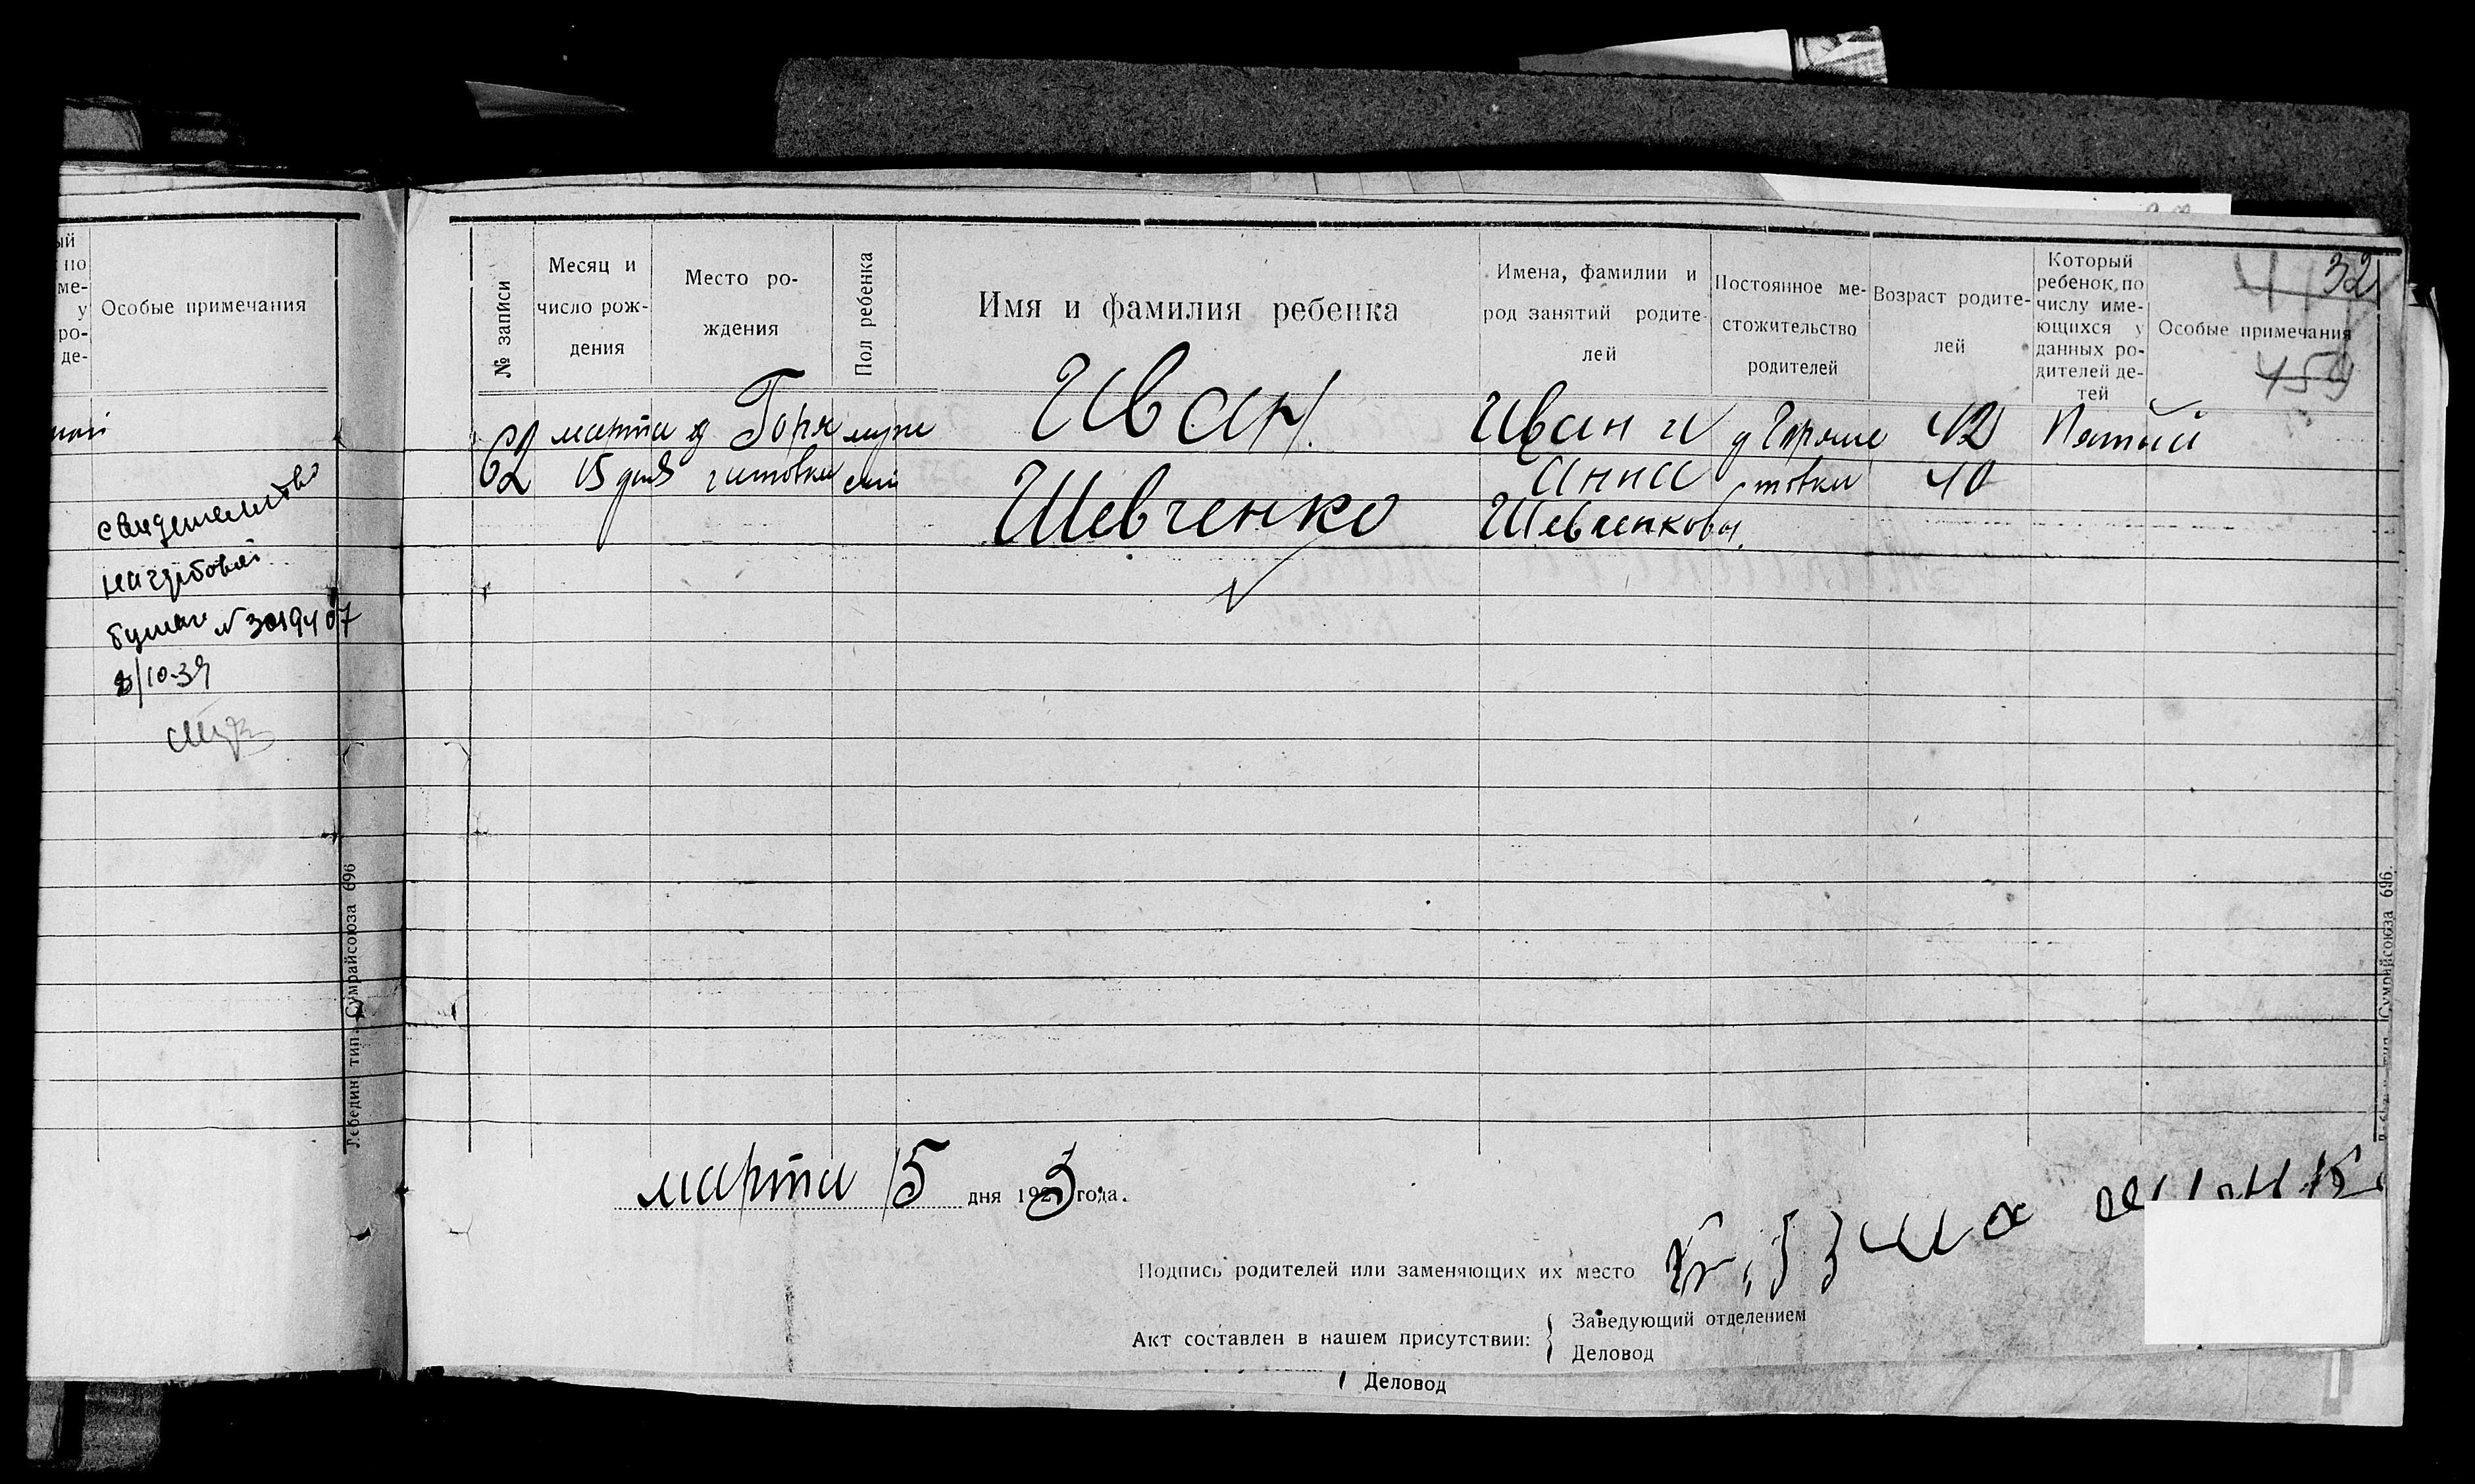 ый
по
ме-
у
ро-
де-
Особые примечания
свидетельство
на гербовой
бумаге № 3019407
8/10-39
Лебедин. тип. Сумрайсоюза 696
№ записи
Месяц и
число рож-
дения
Место ро-
ждения
Пол ребенка
Имя и фамилия ребенка
Имена, фамилии и
род занятий родите-
лей
Постоянное ме-
стожительство
родителей
Возраст родите-
лей
Который
ребенок по
числу име-
ющихся у
данных ро-
дителей де-
тей
Особые примечания
32
459
62
марта
15 дня
Иван
Шевченко
Иван и
Анна
Шевченковы
42
40
Пятый
марта 15 дня 1923 года.
Подпись родителей или заменяющих их место
Акт составлен в нашем присутствии:
Заведующий отделением
Деловод
Деловод
Сумрайсоюза 696.